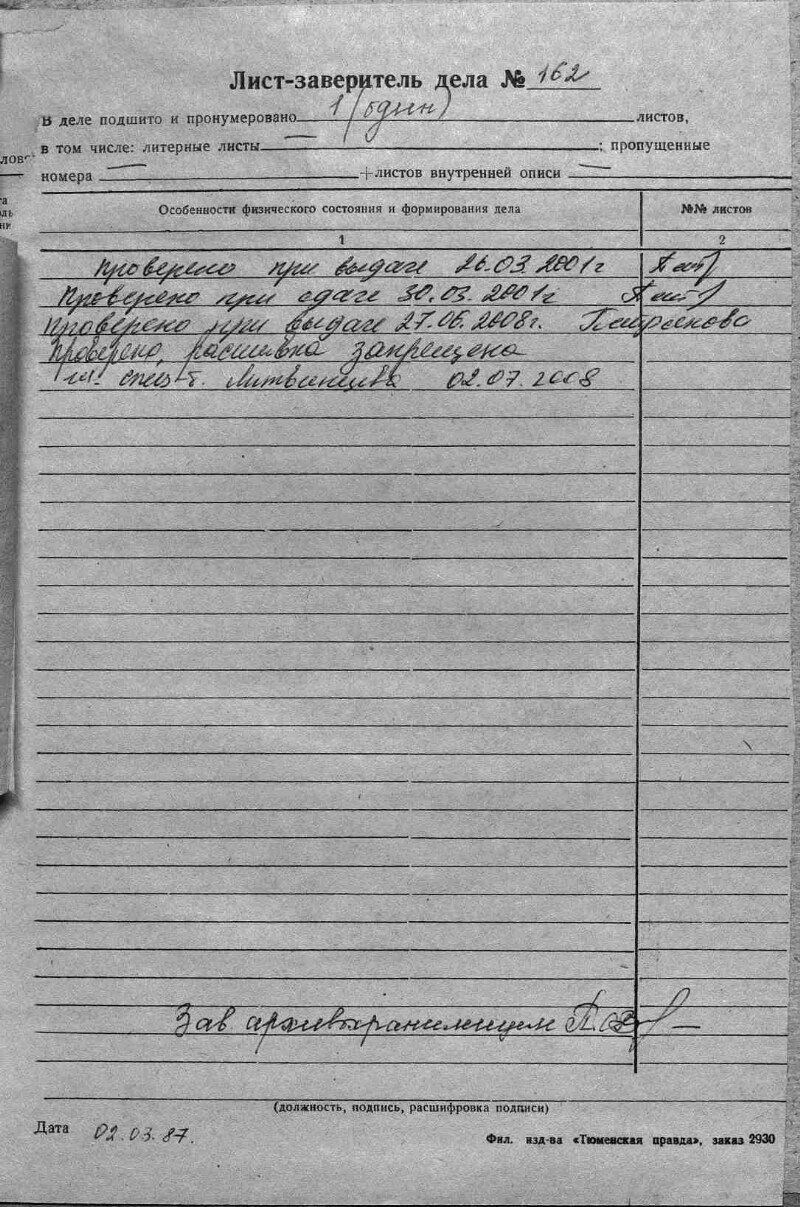 Лист-заверитель дела № 162
В деле подшито и пронумеровано 1 (один) листов,
в том числе: литерные листы — ; пропущенные
номера — + листов внутренней описи —
Особенности физического состояния и формирования дела №№ листов
1 2
Проверено при выдаче 26.03.2001г
Проверено при сдаче 30.03.2001г
Проверено при выдаче 27.06.2008г.
Проверено, расшивка запрещена
02.07.2008
Зав архивохранилищем
(должность, подпись, расшифровка подписи)
Дата 02.03.87.
Фил. изд-ва «Тюменская правда», заказ 2930